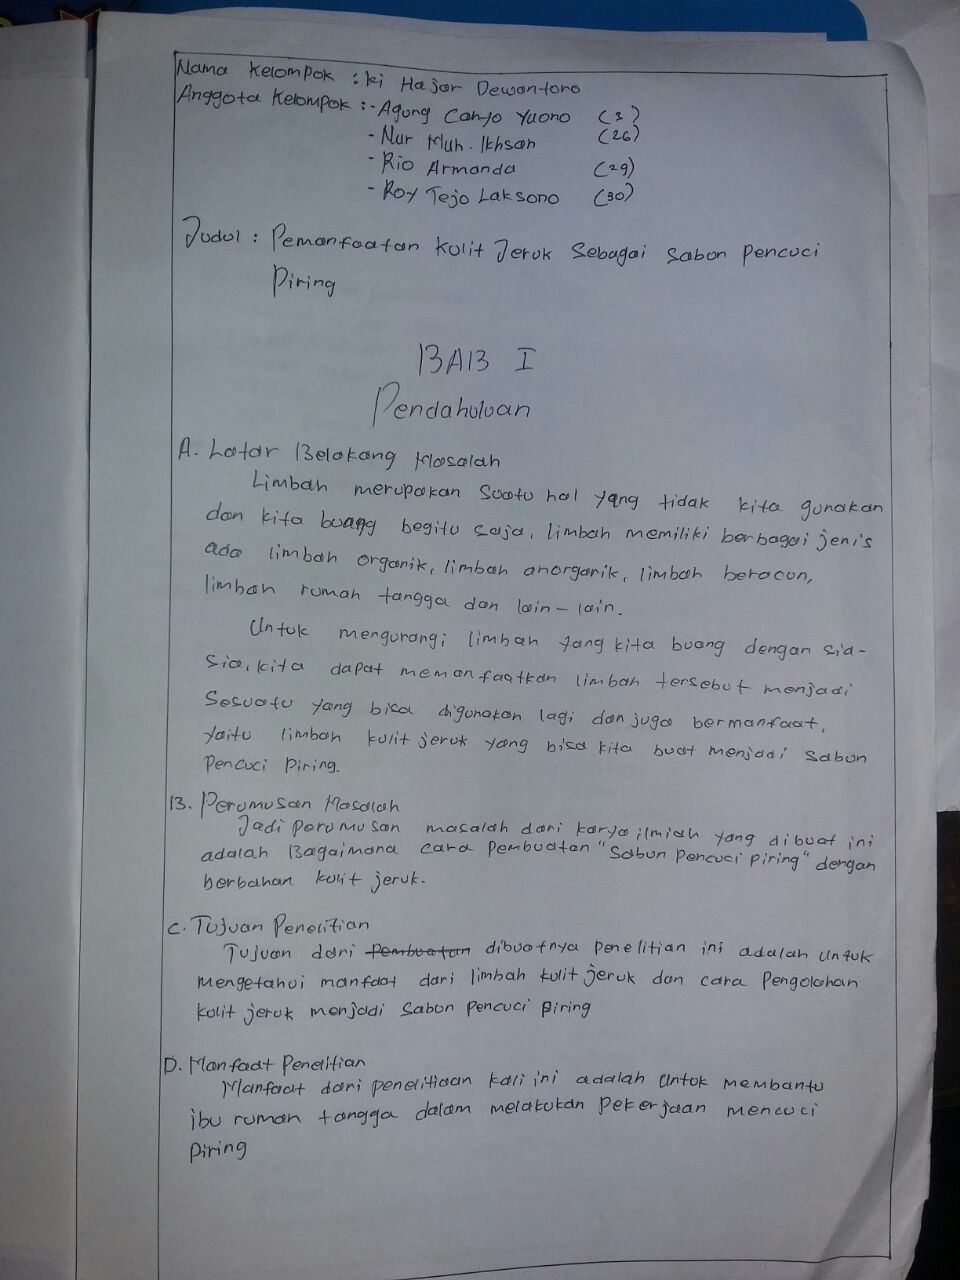 Nama Kelompok : ki Hajar Dewantoro
Anggota Kelompok : - Agung Cahyo Yuono (3)
- Nur Muh. Ikhsan (26)
- Rio Armanda (29)
- Roy Tejo Laksono (30)
Judul : Pemanfaatan Kulit Jeruk Sebagai Sabun Pencuci
Piring
BAB I
Pendahuluan
A. Latar Belakang Masalah
Limbah merupakan Suatu hal yang tidak kita gunakan
dan kita buang begitu saja, limbah memiliki berbagai jenis
ada limbah organik, limbah anorganik, limbah beracun,
limbah rumah tangga dan lain-lain.
Untuk mengurangi limbah yang kita buang dengan sia-
sia, kita dapat memanfaatkan limbah tersebut menjadi
Sesuatu yang bisa digunakan lagi dan juga bermanfaat,
yaitu limbah kulit jeruk yang bisa kita buat menjadi sabun
Pencuci Piring.
B. Perumusan Masalah
Jadi perumusan masalah dari karya ilmiah yang dibuat ini
adalah Bagaimana cara Pembuatan "Sabun Pencuci Piring" dengan
berbahan kulit jeruk.
C. Tujuan Penelitian
Tujuan dari Pembuatan dibuatnya Penelitian ini adalah untuk
mengetahui manfaat dari limbah kulit jeruk dan cara Pengolahan
kulit jeruk menjadi Sabun Pencuci Piring
D. Manfaat Penelitian
Manfaat dari penelitiaan kali ini adalah untuk membantu
ibu rumah tangga dalam melakukan Pekerjaan mencuci
Piring